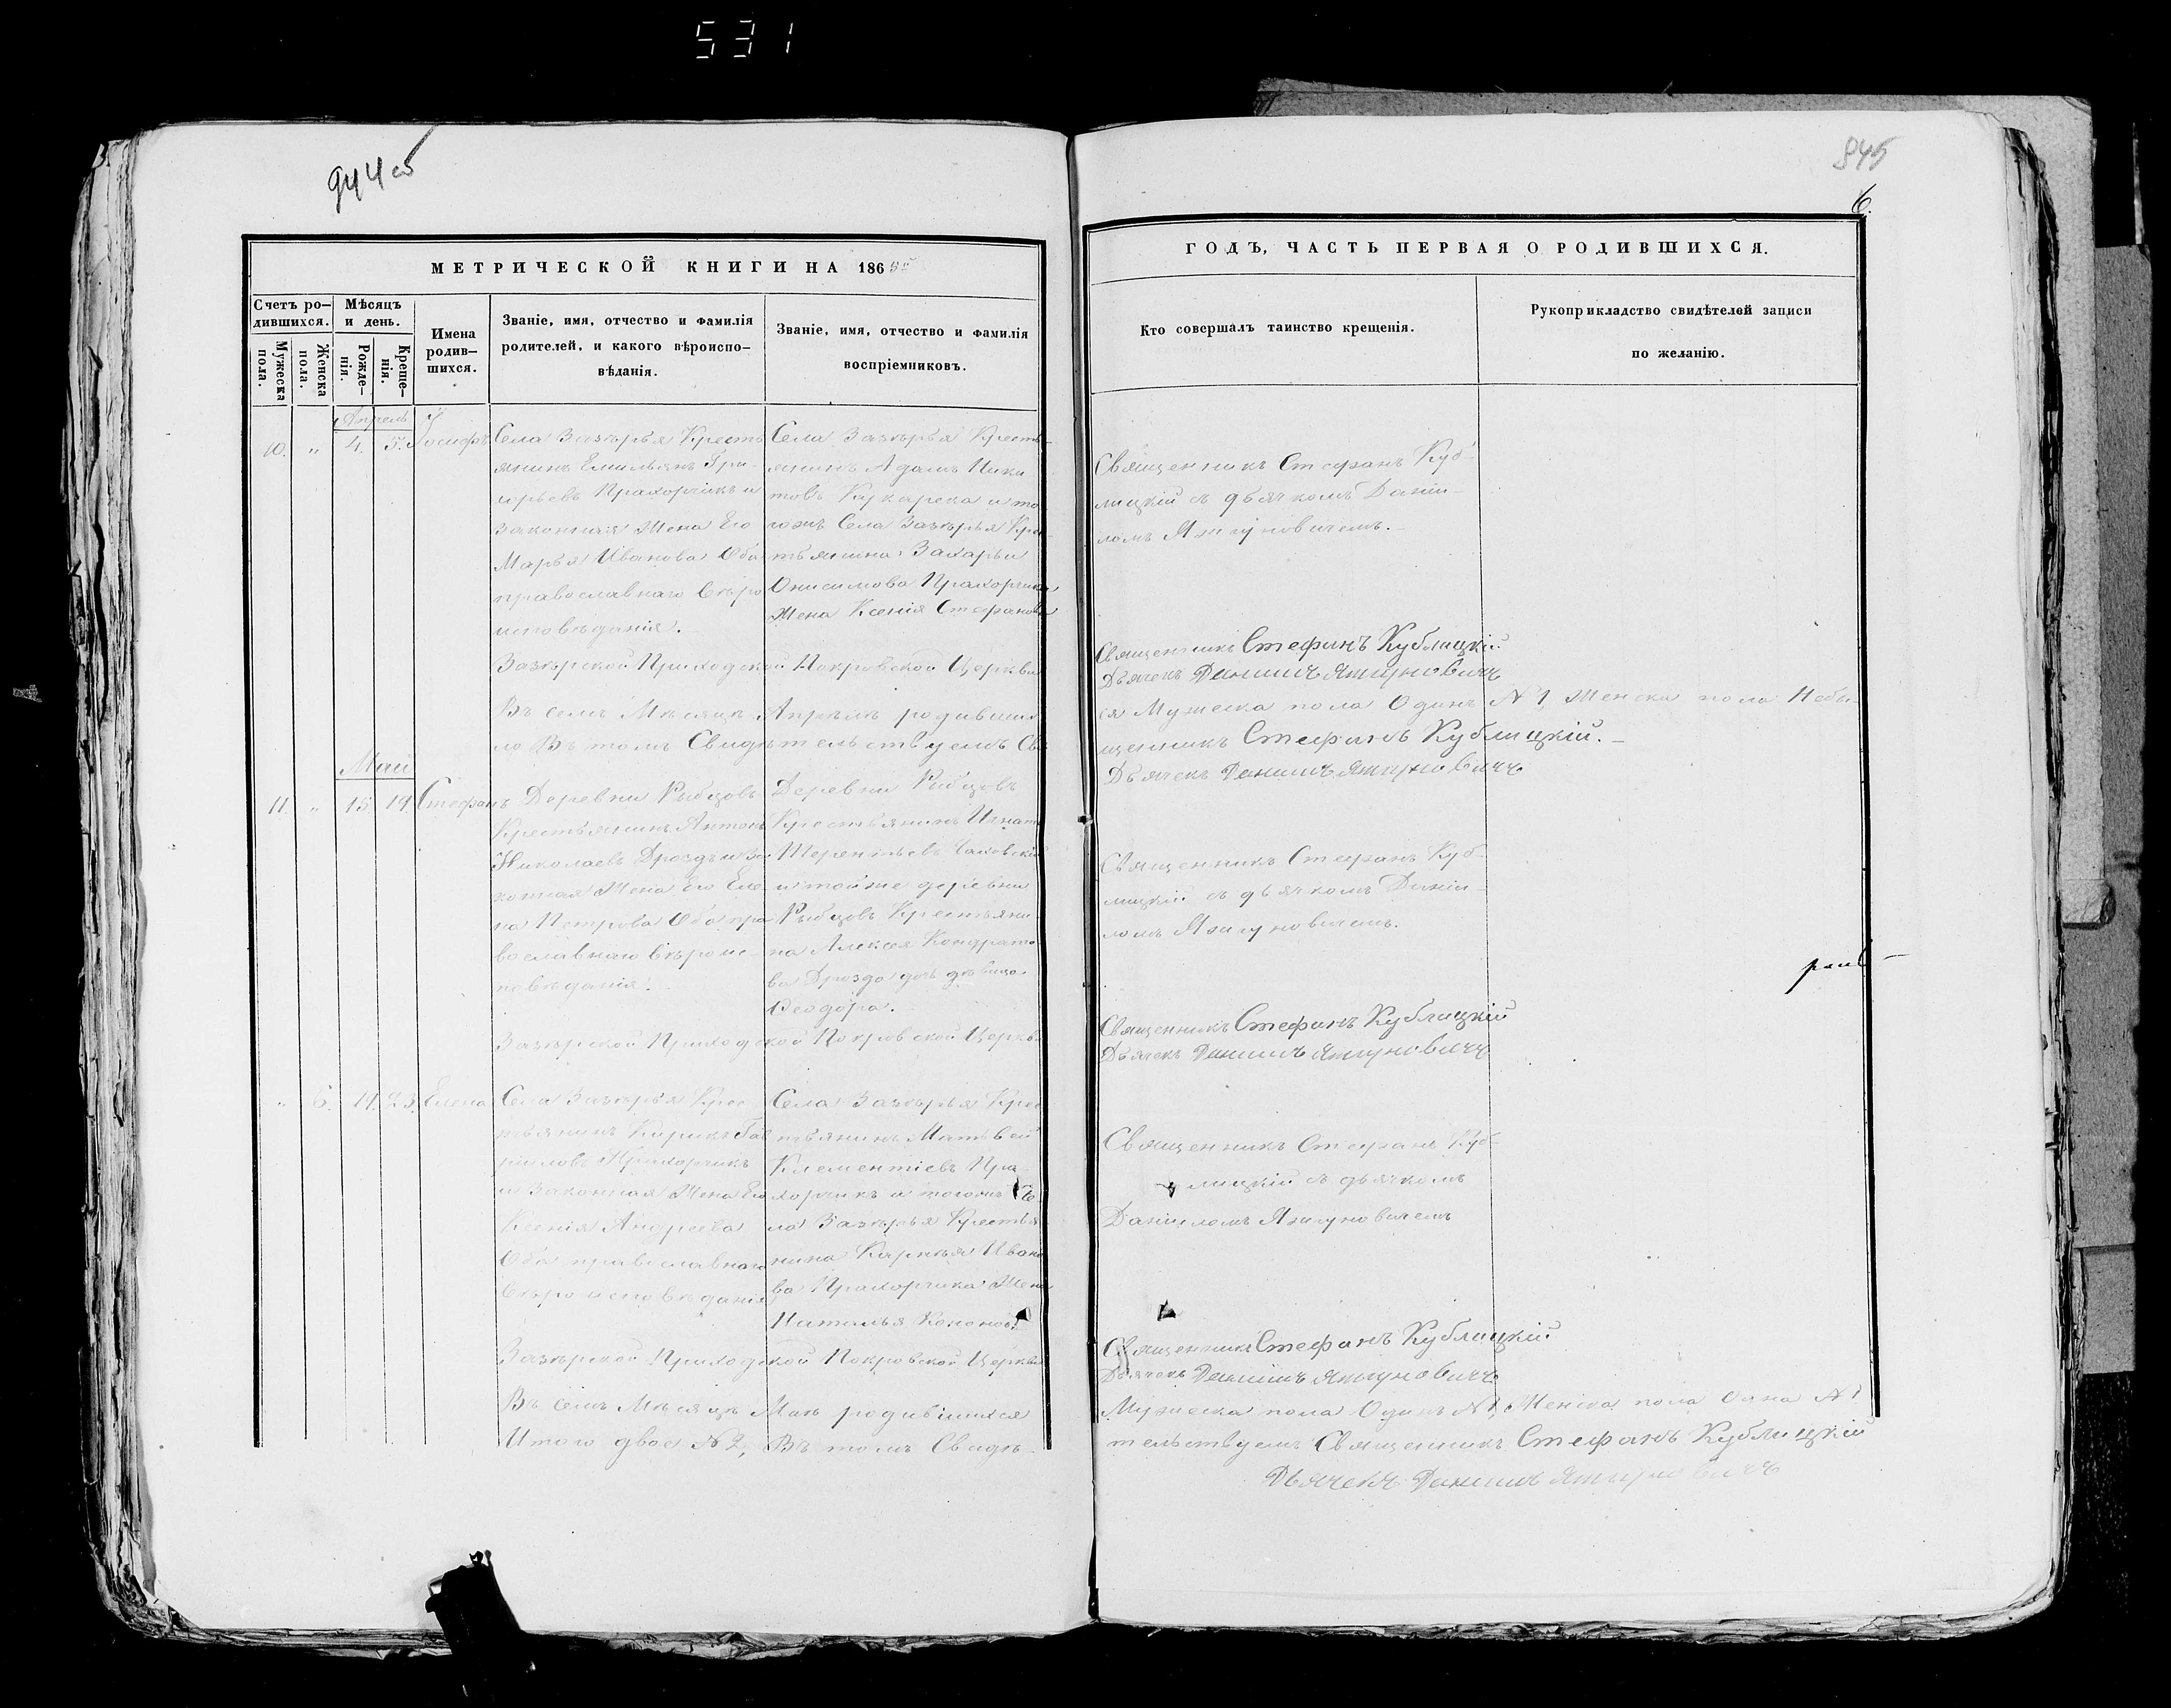 531
944 об
845
6.
МЕТРИЧЕСКОЙ КНИГИ НА 1865й
Счетъ ро-
дившихся.
Мужеска
пола.
Женска
пола.
Мѣсяцъ
и день.
Рожде-
нія.
Креще-
нія.
Имена
родив-
шихся.
Званіе, имя, отчество и фамилія
родителей, и какого вѣроиспо-
вѣданія.
Званіе, имя, отчество и фамилія
воспріемниковъ.
ГОДЪ, ЧАСТЬ ПЕРВАЯ О РОДИВШИХСЯ.
Кто совершалъ таинство крещенія.
Рукоприкладство свидѣтелей записи
по желанію.
Апрель
10. " 4. 5. Іосифъ
Села Зазѣрья Кресть
янинъ Емильянъ Гри-
горьевъ Прахорчикъ и
Законная Жена Его
Марья Иванова Оба
православнаго вѣро
исповѣданія.
Села Зазѣрья Кресть-
янинъ Адамъ Ники
товъ Кукарека и то
гожъ Села Зазѣрья Кре-
стьянина Захарьи
Онисимова Прахорчика
Жена Ксенія Стефанова
Священникъ Стефанъ Куб-
лицкій съ дьячкомъ Даніи-
ломъ Ячиновичемъ.
Зазѣрской Приходской Покровской Церкви
Священникъ Стефанъ Кублицкій
Дьячекъ Даниилъ
Въ семъ Мѣсяцѣ Апрѣлѣ родивших
ся Мужеска пола Одинъ N 1, Женска пола Небы-
ло Въ томъ Свидѣтельствуемъ Свя
щенникъ Стефанъ Кублицкій.
Дьячекъ Даниилъ
Май
11. " 15 19. Стефанъ
Деревни Рыбцовъ
Крестьянинъ Антонъ
Николаевъ Дроздъ и За
конная Жена Его Еле
на Петрова Оба пра
вославнаго вѣроис-
повѣданія.
Деревни Рыбцовъ
Крестьянинъ Игнат
Терентьевъ
и тойже деревни
Рыбцовъ Крестьяни
на Алексея Кондрато
ва Дрозда дочь дѣвица
Ѳеодора.
Священникъ Стефанъ Куб-
лицкій съ дьячкомъ Даніи-
ломъ
Зазѣрской Приходской Покровской Церкви
Священникъ Стефанъ Кублицкій
Дьячекъ Даниилъ
" 6. 14. 23. Елена
Села Зазѣрья Крес
тьянинъ Кирикъ Гав
риловъ Прахорчикъ
и Законная Жена Его
Ксенія Андреева
Оба православнаго
вѣроисповѣданія
Села Зазѣрья Крес
тьянинъ Матвей
Клементіевъ Пра-
хорчикъ и тогожъ Се
ла Зазѣрья Крестья
нина Карнея Ивано
ва Прахорчика Жена
Наталья Кононова
Священникъ Стефанъ Куб-
лицкій съ дьячкомъ
Даніиломъ
Зазѣрской Приходской Покровской Церкви
Священникъ Стефанъ Кублицкій
Дьячекъ Даниилъ
Въ семъ Мѣсяцѣ Маѣ родившихся
Мужеска пола Одинъ N 1, Женска пола Одна N 1
Итого двое N 2, Въ томъ Свидѣ-
тельствуемъ Священникъ Стефанъ Кублицкій
Дьячекъ Даниилъ